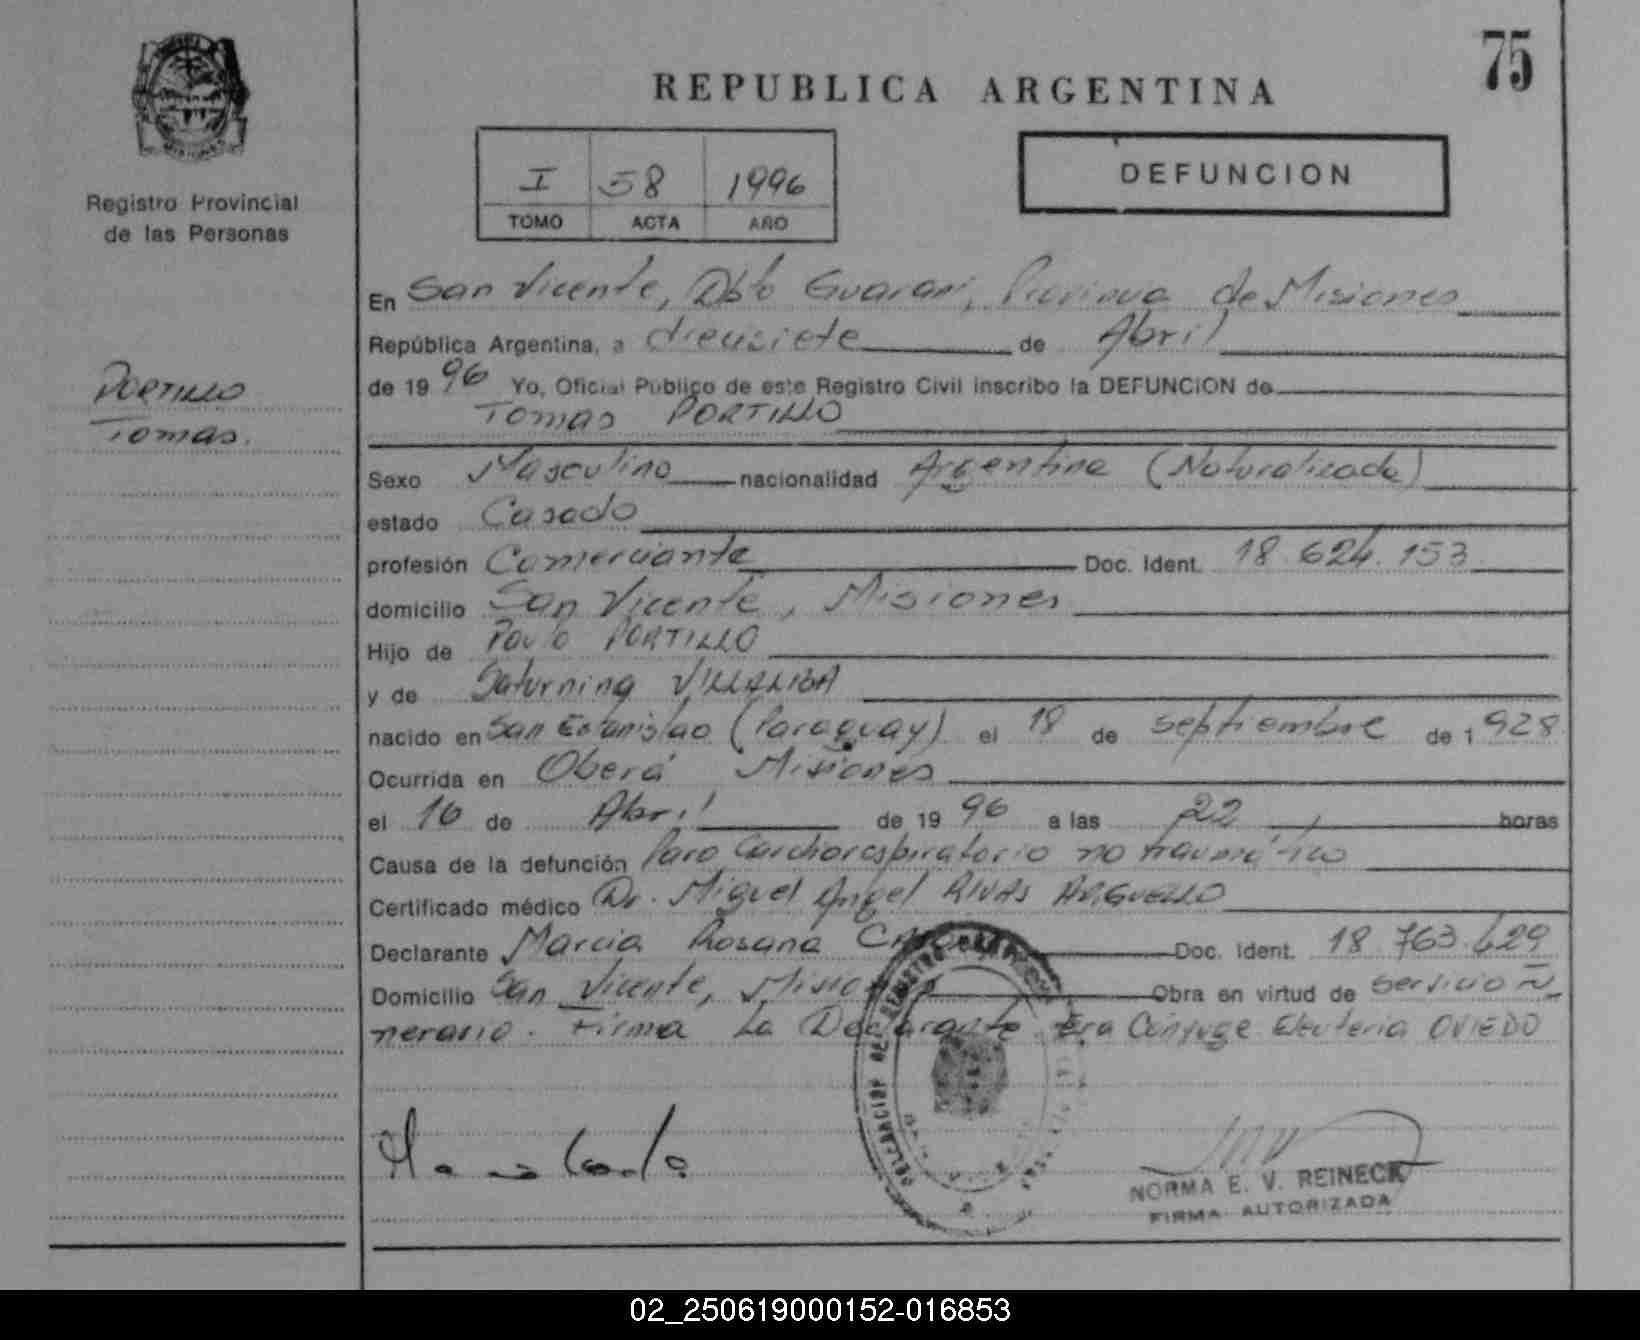 75
REPUBLICA ARGENTINA
I 58 1996
TOMO ACTA AÑO
DEFUNCION
Registro Provincial
de las Personas
PORTILLO
Tomas.
En San Vicente, Dpto Guarani, Provincia de Misiones
República Argentina, a diecisiete de Abril
de 1996 Yo, Oficial Público de este Registro Civil inscribo la DEFUNCION de
Tomas PORTILLO
Sexo Masculino nacionalidad Argentina (Naturalizado)
estado Casado
profesión Comerciante Doc. Ident. 18.624.153
domicilio San Vicente, Misiones
Hijo de PORTILLO
y de Saturnina VILLALBA
nacido en San Estanislao (Paraguay) el 18 de septiembre de 1928
Ocurrida en Oberá Misiones
el 16 de Abril de 1996 a las 22 horas
Causa de la defunción Paro Cardiorespiratorio no traumático
Certificado médico Dr. Miguel Angel RIVAS ARGUELLO
Declarante Marcia Rosana Doc. Ident. 18.763.629
Domicilio San Vicente, Misiones Obra en virtud de servicio fu
nerario. Firma La Declarante. Era Cónyuge Eleuteria OVIEDO
NORMA E. V. REINECK
FIRMA AUTORIZADA
02_250619000152-016853